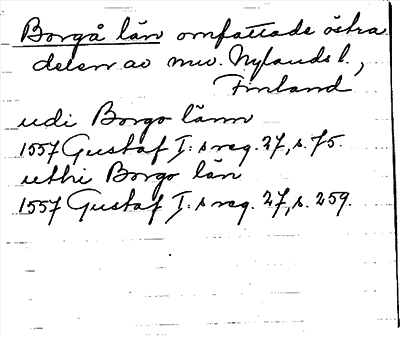 Borgå län omfattade östra
delen av nuv. Nylands l.,
Finland
udi Borgo länn
1557 Gustaf I:s reg. 27, s. 75.
uthi Borgo län
1557 Gustaf I:s reg. 27, s. 259.